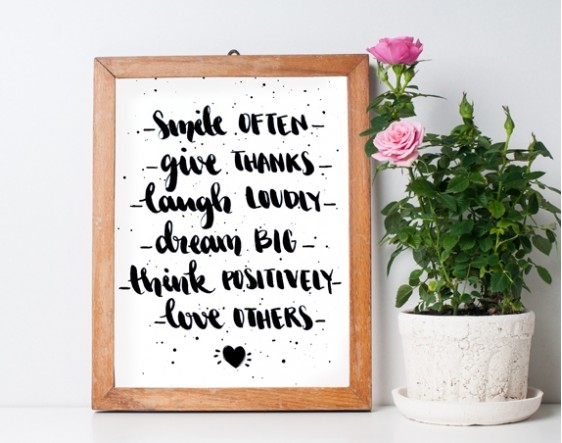 -Smile OFTEN-
-give THANKS-
-laugh LOUDLY-
-dream BIG-
-think POSITIVELY-
-love OTHERS-